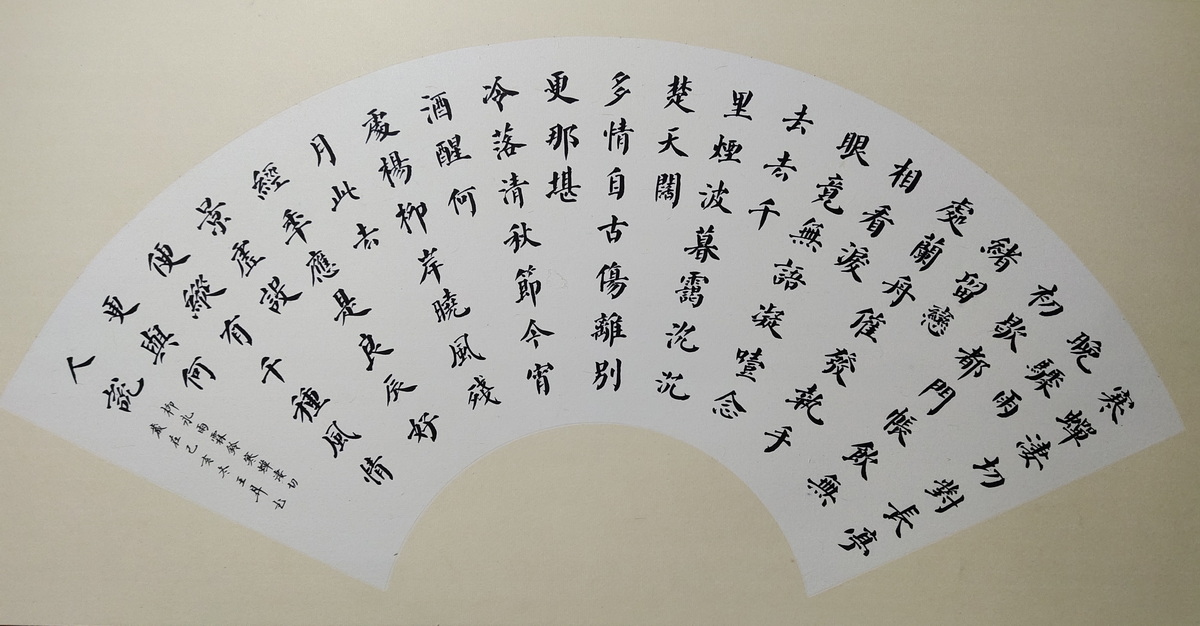 寒蟬淒切對長亭
晚驟雨
初歇都門帳飲無
緒留戀
處蘭舟催發執手
相看淚
眼竟無語凝噎念
去去千
里煙波暮靄沉沉
楚天闊
多情自古傷離別
更那堪
冷落清秋節今宵
酒醒何
處楊柳岸曉風殘
月此去
經秊應是良辰好
景虛設
便縱有千種風情
更與何
人說
柳永雨霖鈴寒蟬淒切
歲在己亥冬王昇书